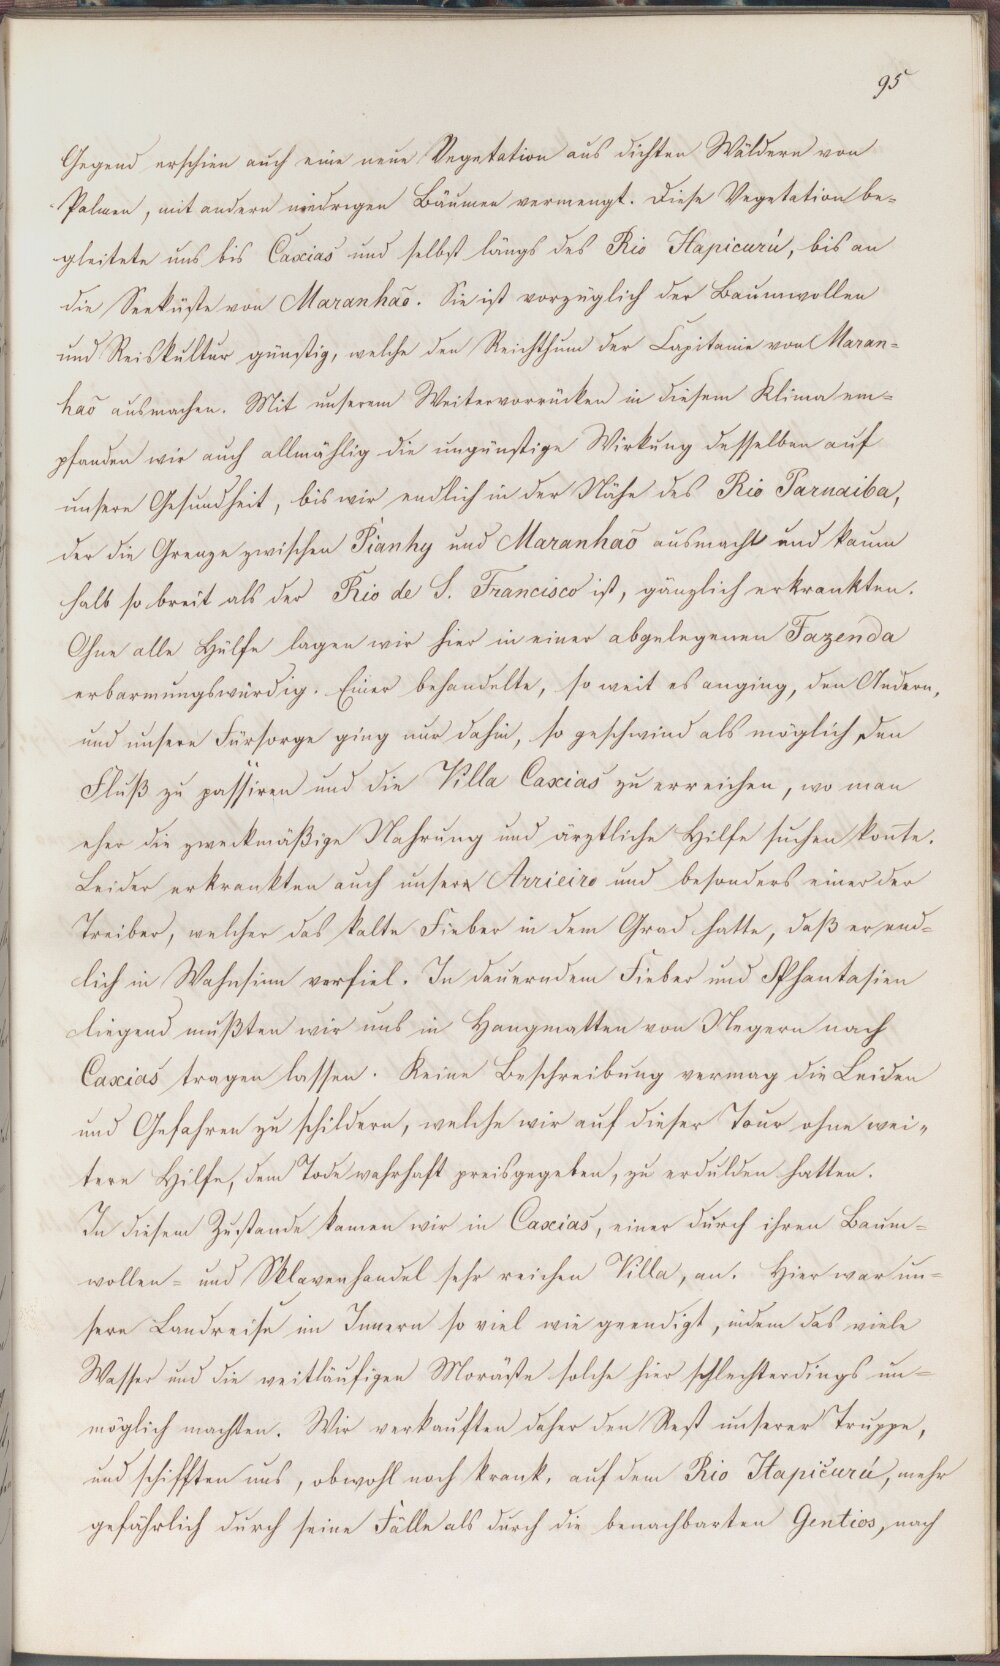 95
Gegend erschien auch eine neue Vegetation aus dichten Wäldern von
Palmen, mit andern niedrigen Bäumen vermengt. Diese Vegetation be=
gleitete uns bis Caxias und selbst längs des Rio Itapicurú, bis an
die Seeküste von Maranhaõ. Sie ist vorzüglich der Baumwollen
und Reiskultur günstig, welche den Reichthum der Capitanie von Maran=
haõ ausmachen. Mit unserem Weitervorrücken in diesem Klima em=
pfanden wir auch allmählig die ungünstige Wirkung desselben auf
unsere Gesundheit, bis wir endlich in der Nähe des Rio Parnaiba,
der die Grenze zwischen Piauhy und Maranhaõ ausmacht und kaum
halb so breit als der Rio de S. Francisco ist, gänzlich erkrankten.
Ohne alle Hülfe lagen wir hier in einer abgelegenen Fazenda
erbarmungswürdig. Einer behandelte, so weit es anging, den Andern,
und unsere Fürsorge ging nur dahin, so geschwind als möglich den
Fluß zu passiren und die Villa Caxias zu erreichen, wo man
eher die zweckmäßige Nahrung und ärztliche Hilfe suchen kon̄te.
Leider erkrankten auch unsere Arrieiro und besonders einer der
Treiber, welcher das kalte Fieber in dem Grad hatte, daß er end=
lich in Wahnsinn verfiel. In dauerndem Fieber und Phantasien
liegend mußten wir uns in Hangmatten von Negern nach
Caxias tragen lassen. Keine Beschreibung vermag die Leiden
und Gefahren zu schildern, welche wir auf dieser Tour ohne wei=
tere Hilfe, dem Tode wahrhaft preisgegeben, zu erdulden hatten.
In diesem Zustande kamen wir in Caxias, einer durch ihren Baum=
wollen= und Sklavenhandel sehr reichen Villa, an. Hier war un=
sere Landreise im Innern so viel wie geendigt, indem das viele
Wasser und die weitläufigen Moräste solche hier schlechterdings un=
möglich machten. Wir verkauften daher den Rest unserer Truppe,
und schifften uns, obwohl noch krank, auf dem Rio Itapicurú, mehr
gefährlich durch seine Fälle als durch die benachbarten Gentios, nach